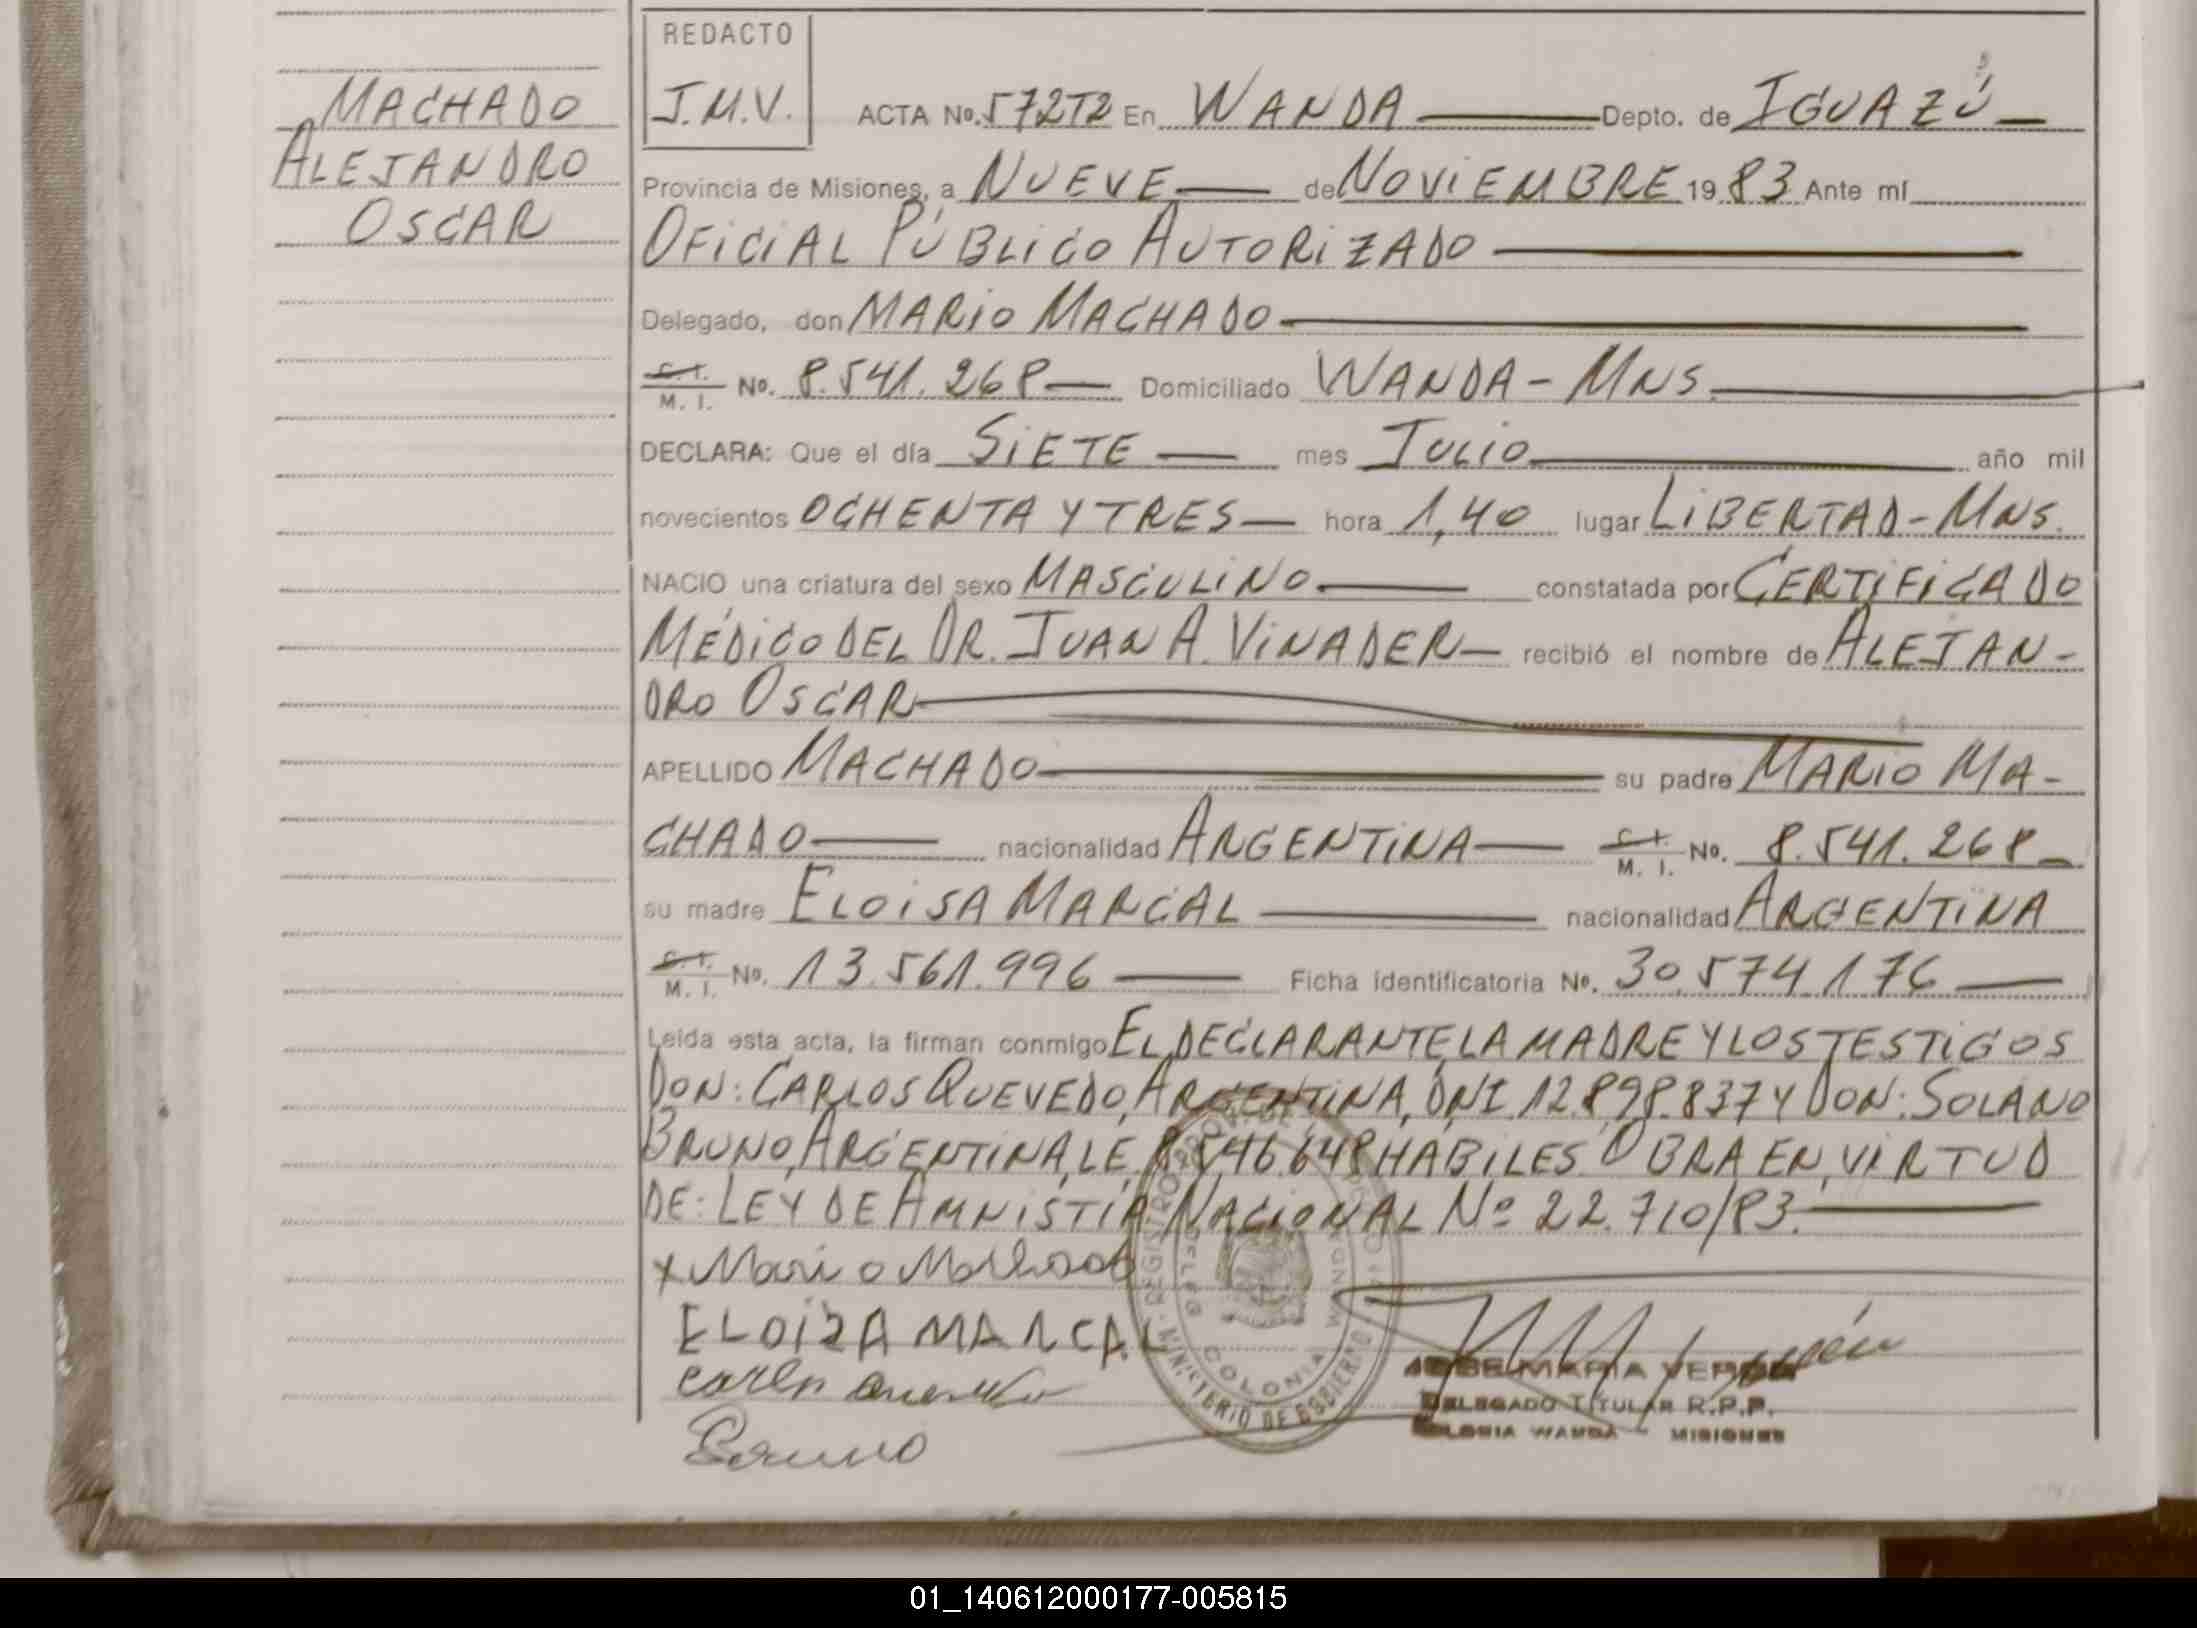 MACHADO
ALEJANDRO
OSCAR
REDACTO
J.M.V. ACTA No. 572T2 En WANDA Depto. de IGUAZÚ
Provincia de Misiones, a NUEVE de NOVIEMBRE 1983 Ante mí
OFICIAL PÚBLICO AUTORIZADO
Delegado, don MARIO MACHADO
C.I. M. I. No. 8.541.268 Domiciliado WANDA - MNS.
DECLARA: Que el día SIETE mes JULIO año mil
novecientos OCHENTA Y TRES hora 1,40 lugar LIBERTAD - MNS.
NACIO una criatura del sexo MASCULINO constatada por CERTIFICADO
MÉDICO DEL DR. JUAN A. VINADER recibió el nombre de ALEJAN-
DRO OSCAR
APELLIDO MACHADO su padre MARIO MA-
CHADO nacionalidad ARGENTINA C.I. M. I. No. 8.541.268
su madre ELOISA MARCAL nacionalidad ARGENTINA
C.I. M. I. No. 13.561.996 Ficha identificatoria No. 30.574.176
Leida esta acta, la firman conmigo EL DECLARANTE, LA MADRE Y LOS TESTIGOS
DON: CARLOS QUEVEDO, ARGENTINA, DNI. 12.898.837 Y DON: SOLANO
BRUNO, ARGENTINA, LE. 8.546.648 HABILES. OBRA EN VIRTUD
DE: LEY DE AMNISTÍA NACIONAL Nº 22.710/83.
x Mario Machado
ELOIZA MARCAL
Carlos Quevedo
Bruno
REGISTRO PROVINCIAL
COLONIA WANDA
MINISTERIO DE GOBIERNO
JOSE MARIA VERON
DELEGADO TITULAR R.P.P.
COLONIA WANDA - MISIONES
01_140612000177-005815